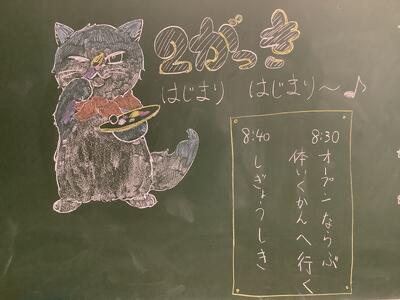 2がっき
はじまり　はじまり〜♪
8:30
オープンならぶ
体いくかんへ行く
8:40
しぎょうしき